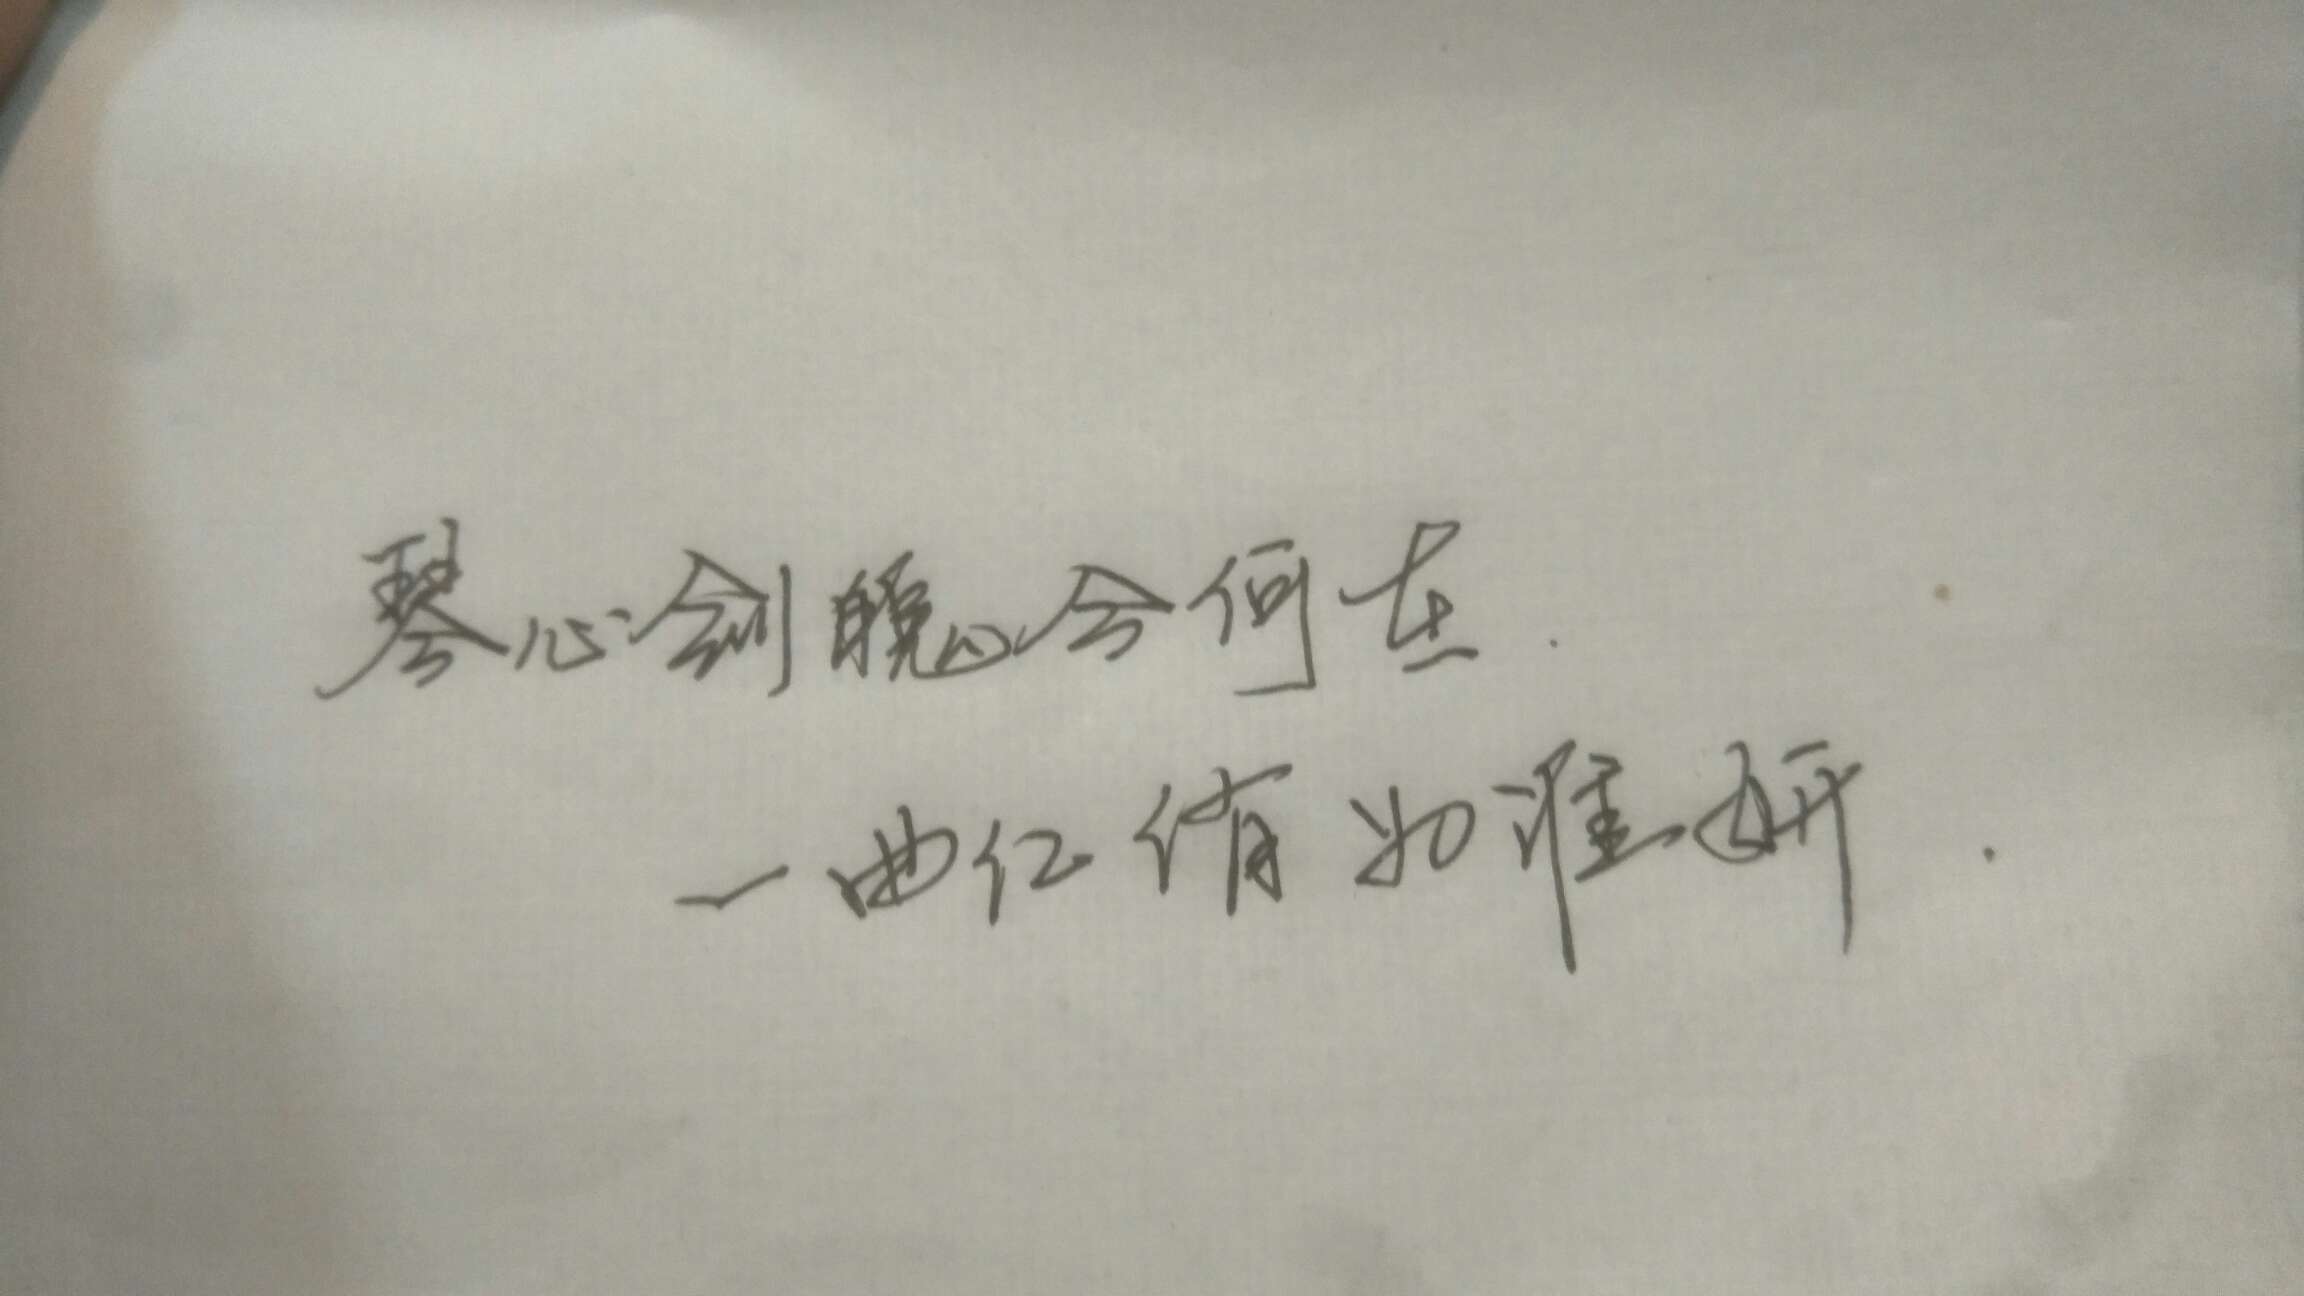 琴心剑魄今何在.
一曲红绡如谁妍.